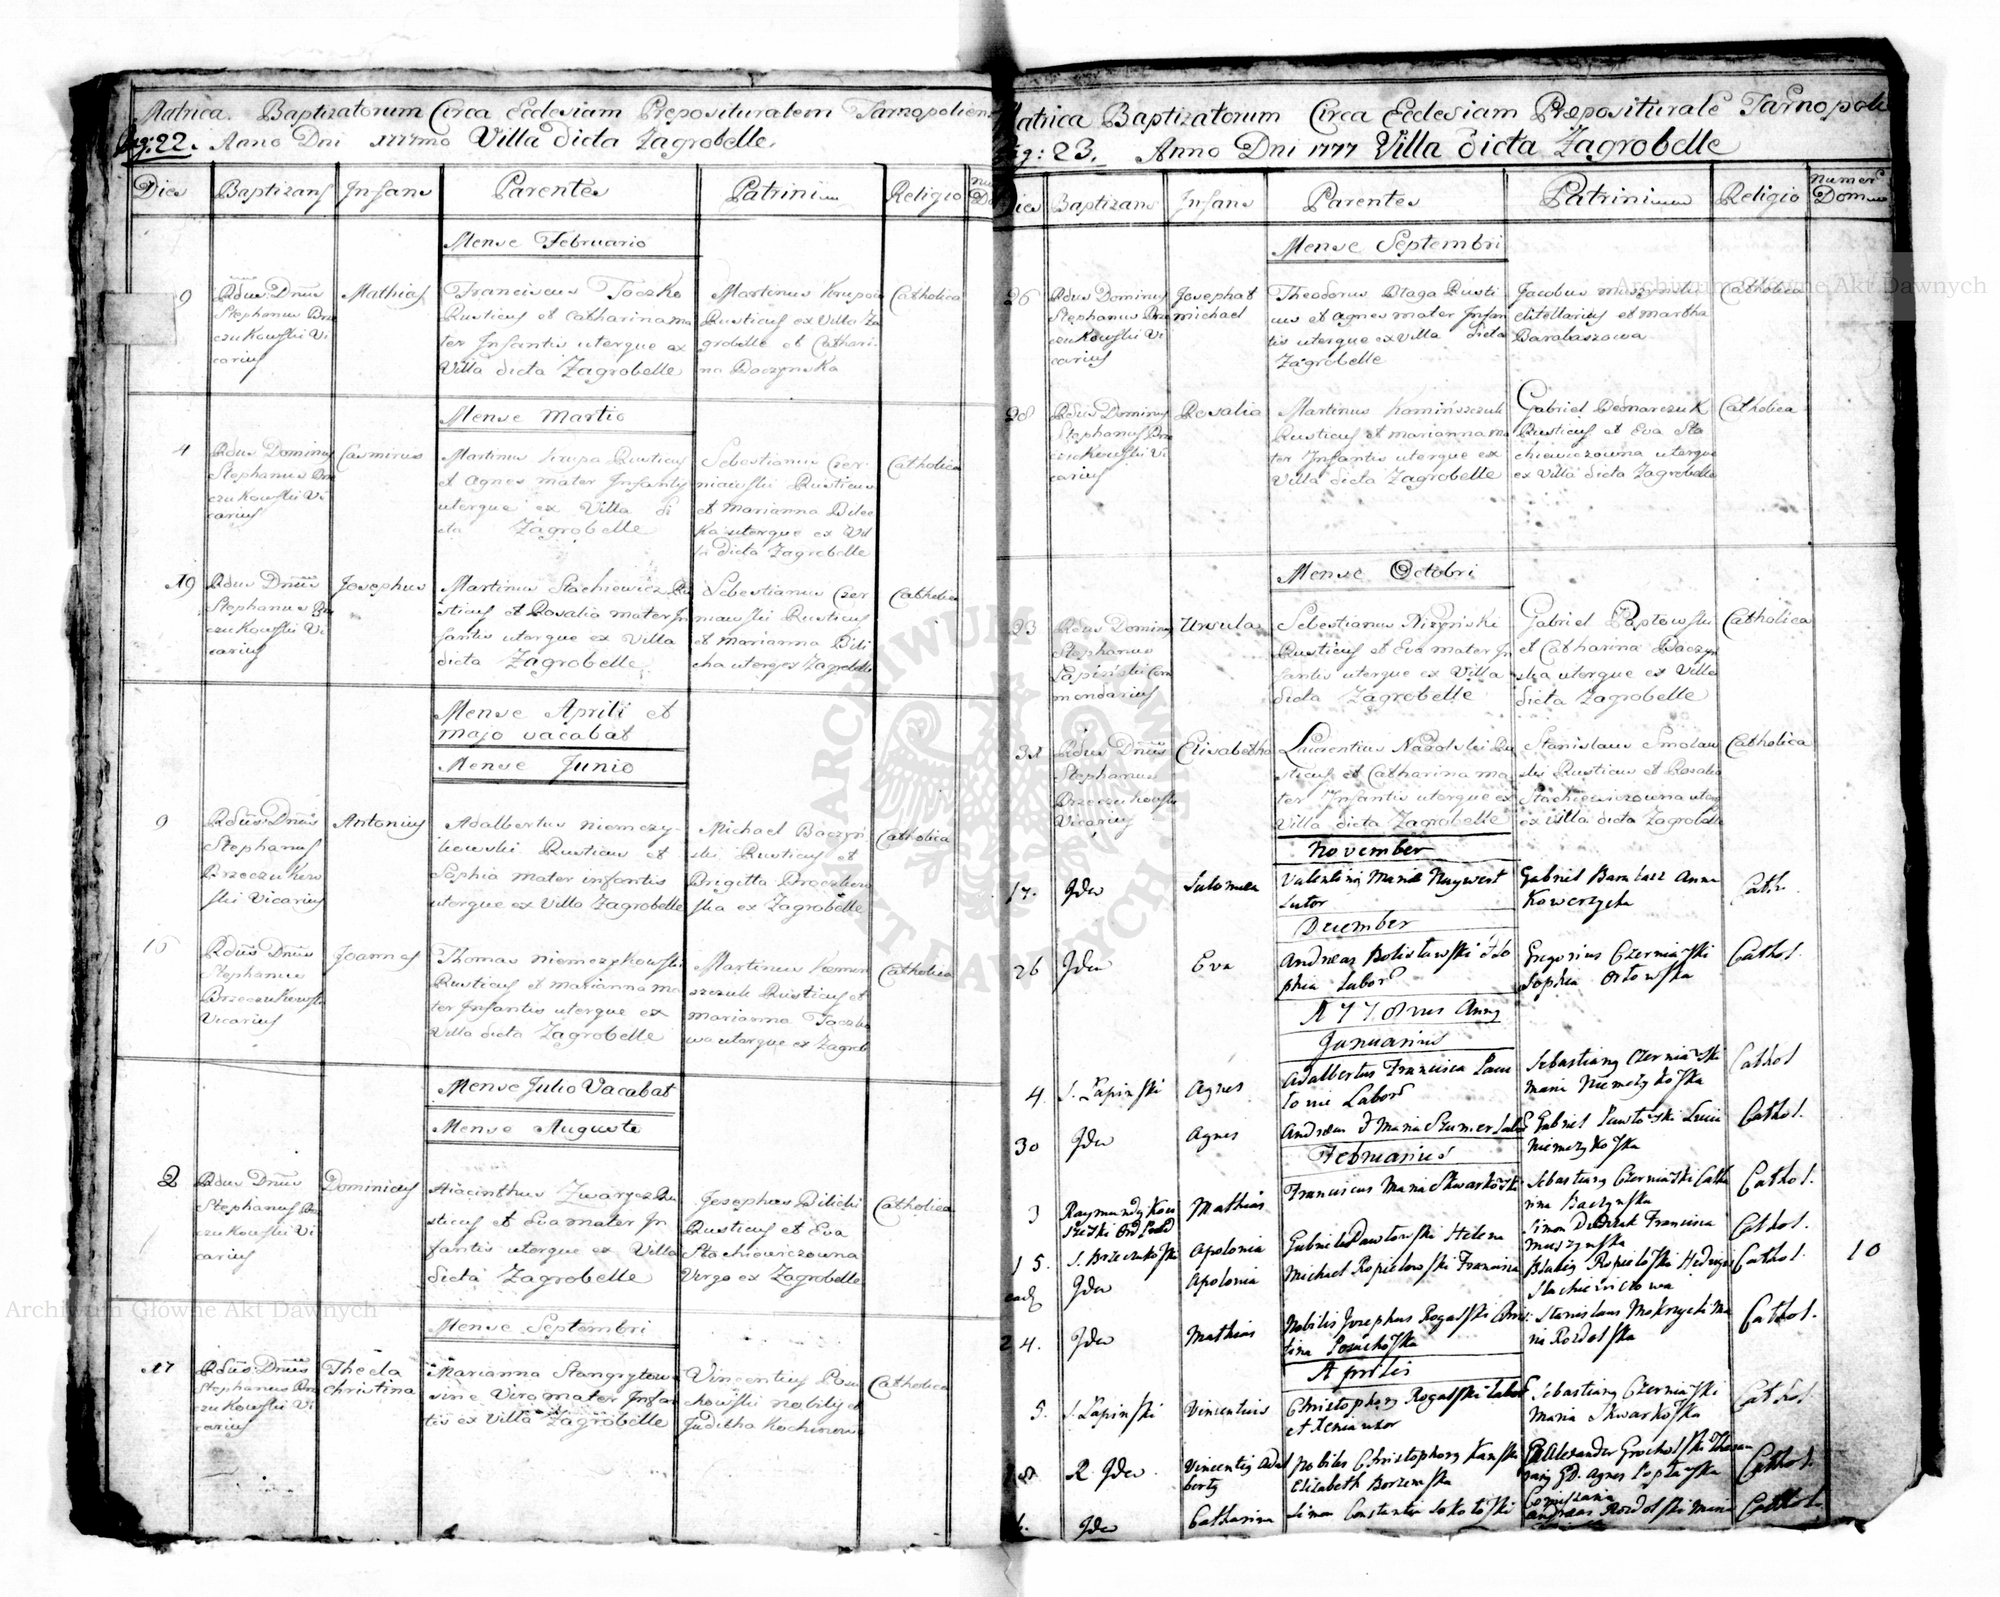 Matrica Baptizatorum Circa Ecclesiam Præposituralem Tarnopoliens
Pag: 22. Anno Dni 1777mo Villa dicta Zagrobelle.
Dies Baptizans Infans Parentes Patrini Religio
Mense Februario
9
Rdus Dnus
Stephanus Brze
czukowski Vi
carius
Mathias
Franciscus Toczko
Rusticus et Catharina ma
ter Infantis uterque ex
Villa dicta Zagrobelle
Martinus Krupa
Rusticus ex Villa Za
grobelle et Cathari
na Baczynska
Catholica
Mense Martio
4
Rdus Dominus
Stephanus Brze
czukowski Vi
carius
Casmirus
Martinus Krupa Rusticus
et Agnes mater Infantis
uterque ex Villa di
cta Zagrobelle
Sebestianus Czer
niawski Rusticus
et Marianna Bilec
ka uterque ex Vil
la dicta Zagrobelle
Catholica
19
Rdus Dnus
Stephanus Brze
czukowski Vi
carius
Josephus
Martinus Stachiewicz Ru
sticus et Rosalia mater In
fantis uterque ex Villa
dicta Zagrobelle
Sebestianus Czer
niawski Rusticus
et Marianna Bili
cha uterq ex Zagrobelle
Catholica
Mense Aprili et
Majo vacabat
Mense Junio
9
Rdus Dnus
Stephanus
Brzeczukow
ski Vicarius
Antonius
Adalbertus Niemczy-
kowski Rusticus et
Sophia mater infantis
uterque ex Villa Zagrobelle
Michael Baczyn
ski Rusticus et
Brigitta
ska ex Zagrobelle
Catholica
Rdus Dnus
Stephanus
Brzeczukowski
Vicarius
Joannes
Thomas Niemczykowski
Rusticus et Marianna ma
ter Infantis uterque ex
Villa dicta Zagrobelle
Martinus Kamin
szczuk Rusticus et
Marianna Toczko
wa uterque ex Zagrob
Catholica
Mense Julio Vacabat
Mense Augusto
2
Rdus Dnus
Stephanus Brze
czukowski Vi
carius
Dominicus
Hiacinthus Zwarycz Ru
sticus et Eva mater In
fantis uterque ex Villa
dicta Zagrobelle
Josephus Bilicki
Rusticus et Eva
Stachiewiczowna
Virgo ex Zagrobelle
Catholica
Mense Septembri
17
Rdus Dnus
Stephanus Brze
czukowski Vi
carius
Thecla
Christina
Marianna
sine Viro mater Infan
tis ex Villa Zagrobelle
Vincentius
chowski nobilis et
Juditha
Catholica
Matrica Baptizatorum Circa Ecclesiam Præposituralē Tarnopoli
Pag: 23. Anno Dni 1777 Villa dicta Zagrobelle
Dies Baptizans Infans Parentes Patrini Religio Numer Domus
Mense Septembri
26
Rdus Dominus
Stephanus Brze
czukowski Vi
carius
Josephat
Michael
Theodorus Blaga Rusti
cus et Agnes mater Infan
tis uterque ex Villa dicta
Zagrobelle
Jacobus Muszynski
et Martha
Barabaszowa
Catholica
28
Rdus Dominus
Stephanus Brze
czukowski Vi
carius
Rosalia
Martinus Kaminszczuk
Rusticus et Marianna ma
ter Infantis uterque ex
Villa dicta Zagrobelle
Gabriel Bednarczuk
Rusticus et Eva Sta
chiewiczowna uterque
ex Villa dicta Zagrobelle
Catholica
Mense Octobri
23
Rdus Dominus
Stephanus
Łapiński Com
mendarius
Ursula
Sebestianus Nizynski
Rusticus et Eva mater In
fantis uterque ex Villa
dicta Zagrobelle
Gabriel Pawłowski
et Catharina Baczyn
ska uterque ex Villa
dicta Zagrobelle
Catholica
31
Rdus Dnus
Stephanus
Brzeczukowski
Vicarius
Elisabetha
Laurentius Nadolski Ru
sticus et Catharina ma
ter Infantis uterque ex
Villa dicta Zagrobelle
Stanislaus Smolan
ski Rusticus et Rosalia
Stachiewiczowna uterq
ex Villa dicta Zagrobelle
Catholica
November
17.
Idem
Salomea
Valentinq Maria Naywert
Sutor
Gabriel Barabasz Anna
Cath.
December
26
Idem
Eva
Andreas Bolisławski & So
phia Labor
Gregorius Czerniawski
Sophia Orłowska
Cathol.
1778vus Annq
Januarius
4
S. Łapinski
Agnes
Adalbertus Francisca
Labor
Sebastianq Czerniawski
Maria Niemczykowska
Cathol
30
Idem
Agnes
Andreas & Maria Szumer Labor
Gabriel Pawłowski Lucia
Niemczykowska
Cathol.
Februarius
3
Mathias
Franciscus Maria Skwarkowski
Sebastianq Czerniawski Catha
rina Baczynska
Cathol.
15.
S. Brzeczukowski
Apolonia
Gabriel Pawłowski Helena
Simon Dudziak Francisca
Muszynska
Cathol.
ead
Idem
Apolonia
Michael Ropielowski Francisca
Blasiq Ropielowski Hedvigis
Stachiewiczowa
Cathol.
10
24.
Idem
Mathias
Nobilis Josephus Rogalski Chris
tina
Stanislaus Mokrzycki Ma
ria Rozdolska
Cathol.
Aprilis
5.
S. Łapinski
Vincentius
Christophorq Rogalski Labor
et Xenia uxor
Sebastianq Czerniawski
Maria Skwarkowska
Cathol.
R. Idem
Vincentiq Adal
bertq
Nobilis Christophorq Kanski
Elizabeth Borzemska
Alexander Grocholski
Agnes
Cathol.
Idem
Catharina
Simon Constantia Sokołowski
Andreas Rozdolski Maria
Cathol.
Archiwum Główne Akt Dawnych
Archiwum Główne Akt Dawnych
ARCHIWUM GŁÓWNE AKT DAWNYCH